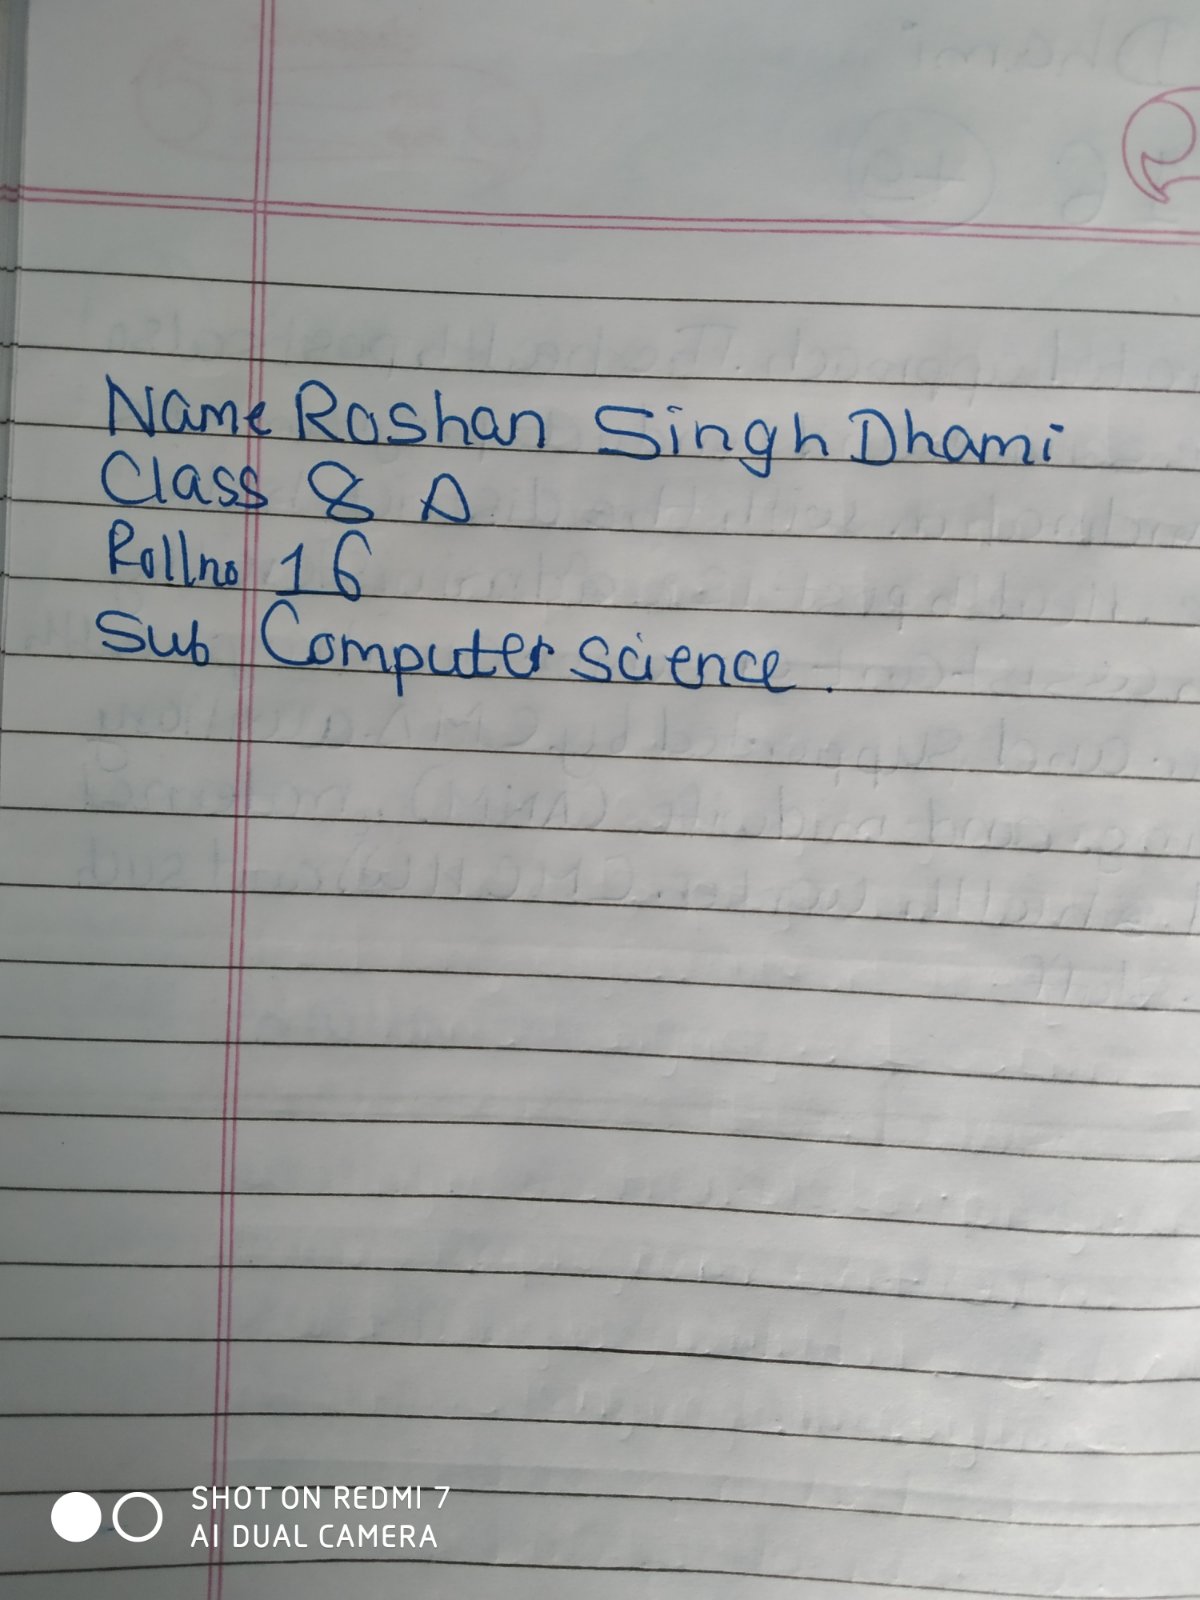 Name Roshan Singh Dhami
Class 8 A
Rollno 16
Sub Computer science.
SHOT ON REDMI 7
AI DUAL CAMERA